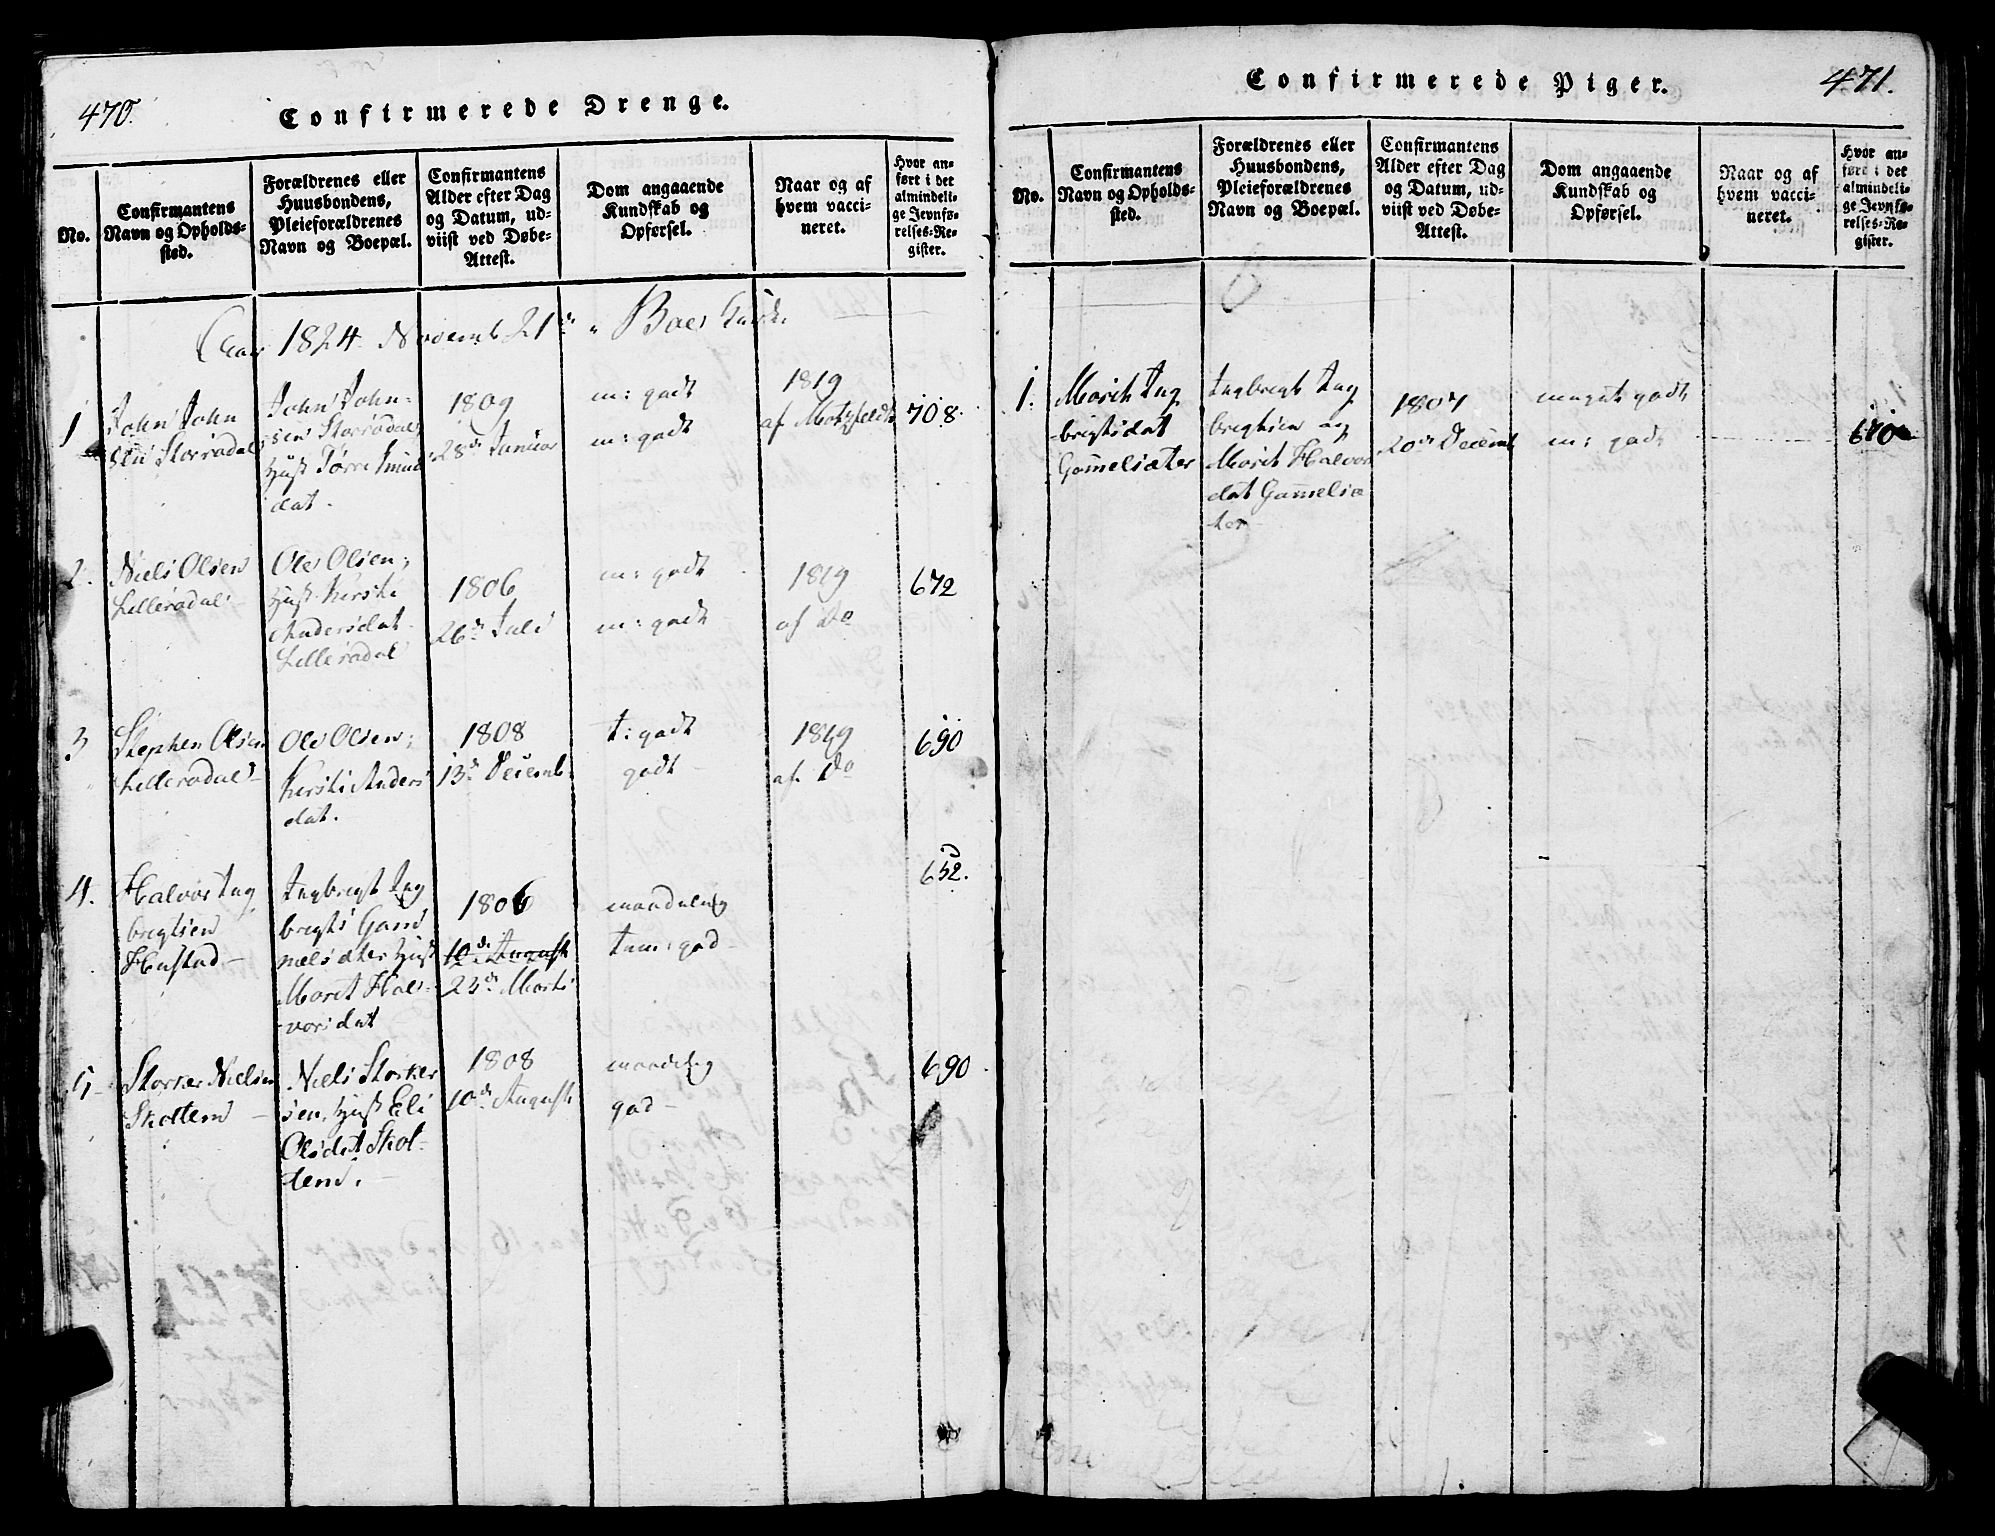 470.
Confirmerede Drenge.
No.
Confirmantens
Navn og Opholds-
sted.
Forældrenes eller
Huusbondens,
Pleieforældrenes
Navn og Boepæl.
Confirmantens
Alder efter Dag
og Datum, ud-
viist ved Døbe-
Attest.
Dom angaaende
Kundskab og
Opførsel.
Naar og af
hvem vacci-
neret.
Hvor an-
ført i det
almindeli-
ge Jevnfø-
relses-Re-
gister.
1824 Novemb 21de
1
John John
sen Storrødal
John John-
sen Storrødal,
Hust
dat.
1809
28de Januar
m: godt
m: godt
1819
af Motzfeldt
708.
2.
Niels Olsen
Lillerødal
Ole Olsen;
Hust Kirsti
Andersdat
Lillerødal
1806
26de Juli
m: godt
m: godt
1819
af Do
672
3
Stephen Olsen
Lillerødal
Ole Olsen;
Kirsti Anders
dat.
1808
13de Decemb
t: godt
godt
1819
af Do
690
4.
Halvor Ing
brigtsen
Hustad
Ingbrigt Ing
brigts Gam
melsæter Hust
Marit Hal-
vorsdat
1806
10de August
23de Marts
maadelig
tem: god
652.
5
Storker Nielsen
Skoltem
Niels Storker
sen, Hust Eli
Olsdat Skol-
tem.
1808
10de August
maadelig
god
690
Confirmerede Piger.
471.
No.
Confirmantens
Navn og Opholds-
sted.
Forældrenes eller
Huusbondens,
Pleieforældrenes
Navn og Boepæl.
Confirmantens
Alder efter Dag
og Datum, ud-
viist ved Døbe-
Attest.
Dom angaaende
Kundskab og
Opførsel.
Naar og af
hvem vacci-
neret.
Hvor an-
ført i det
almindeli-
ge Jevnfø-
relses-Re-
gister.
1.
Marit Ing
brigtsdat
Gamelsæter
Ingbrigt Ing
brigtsen og
Marit Halvors
dat Gamelsæ
ter
1807
20de Decemb
meget godt
m: godt
670